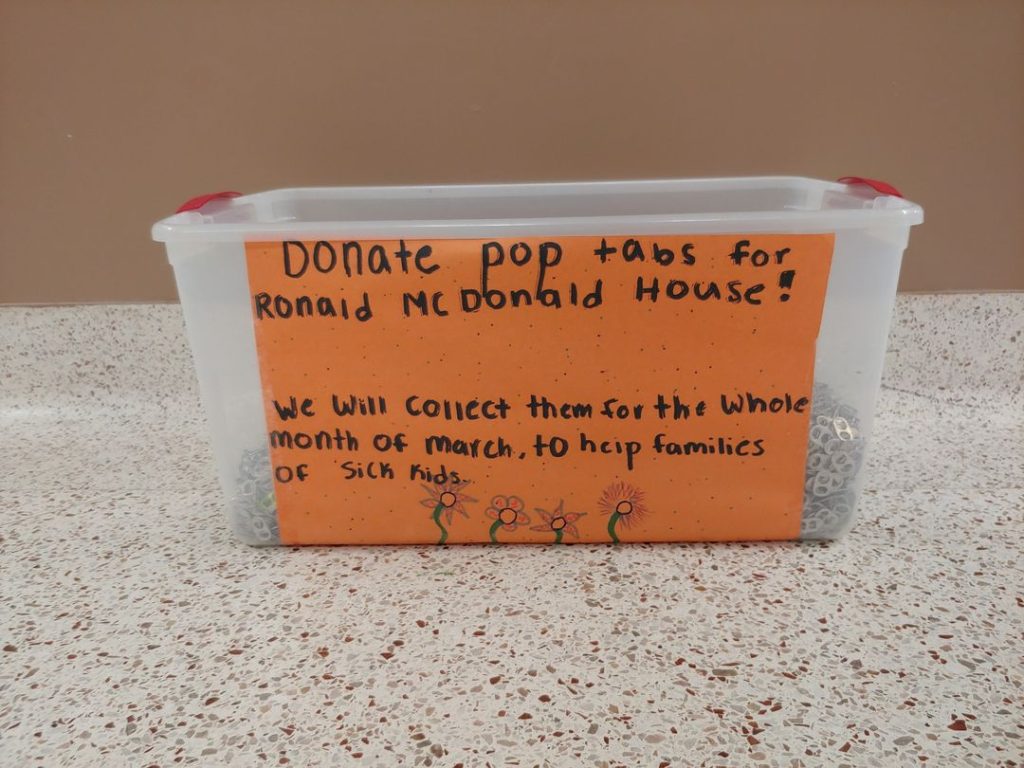 Donate pop tabs for
Ronald McDonald House!
We will collect them for the whole
month of march, to help families
of sick kids.